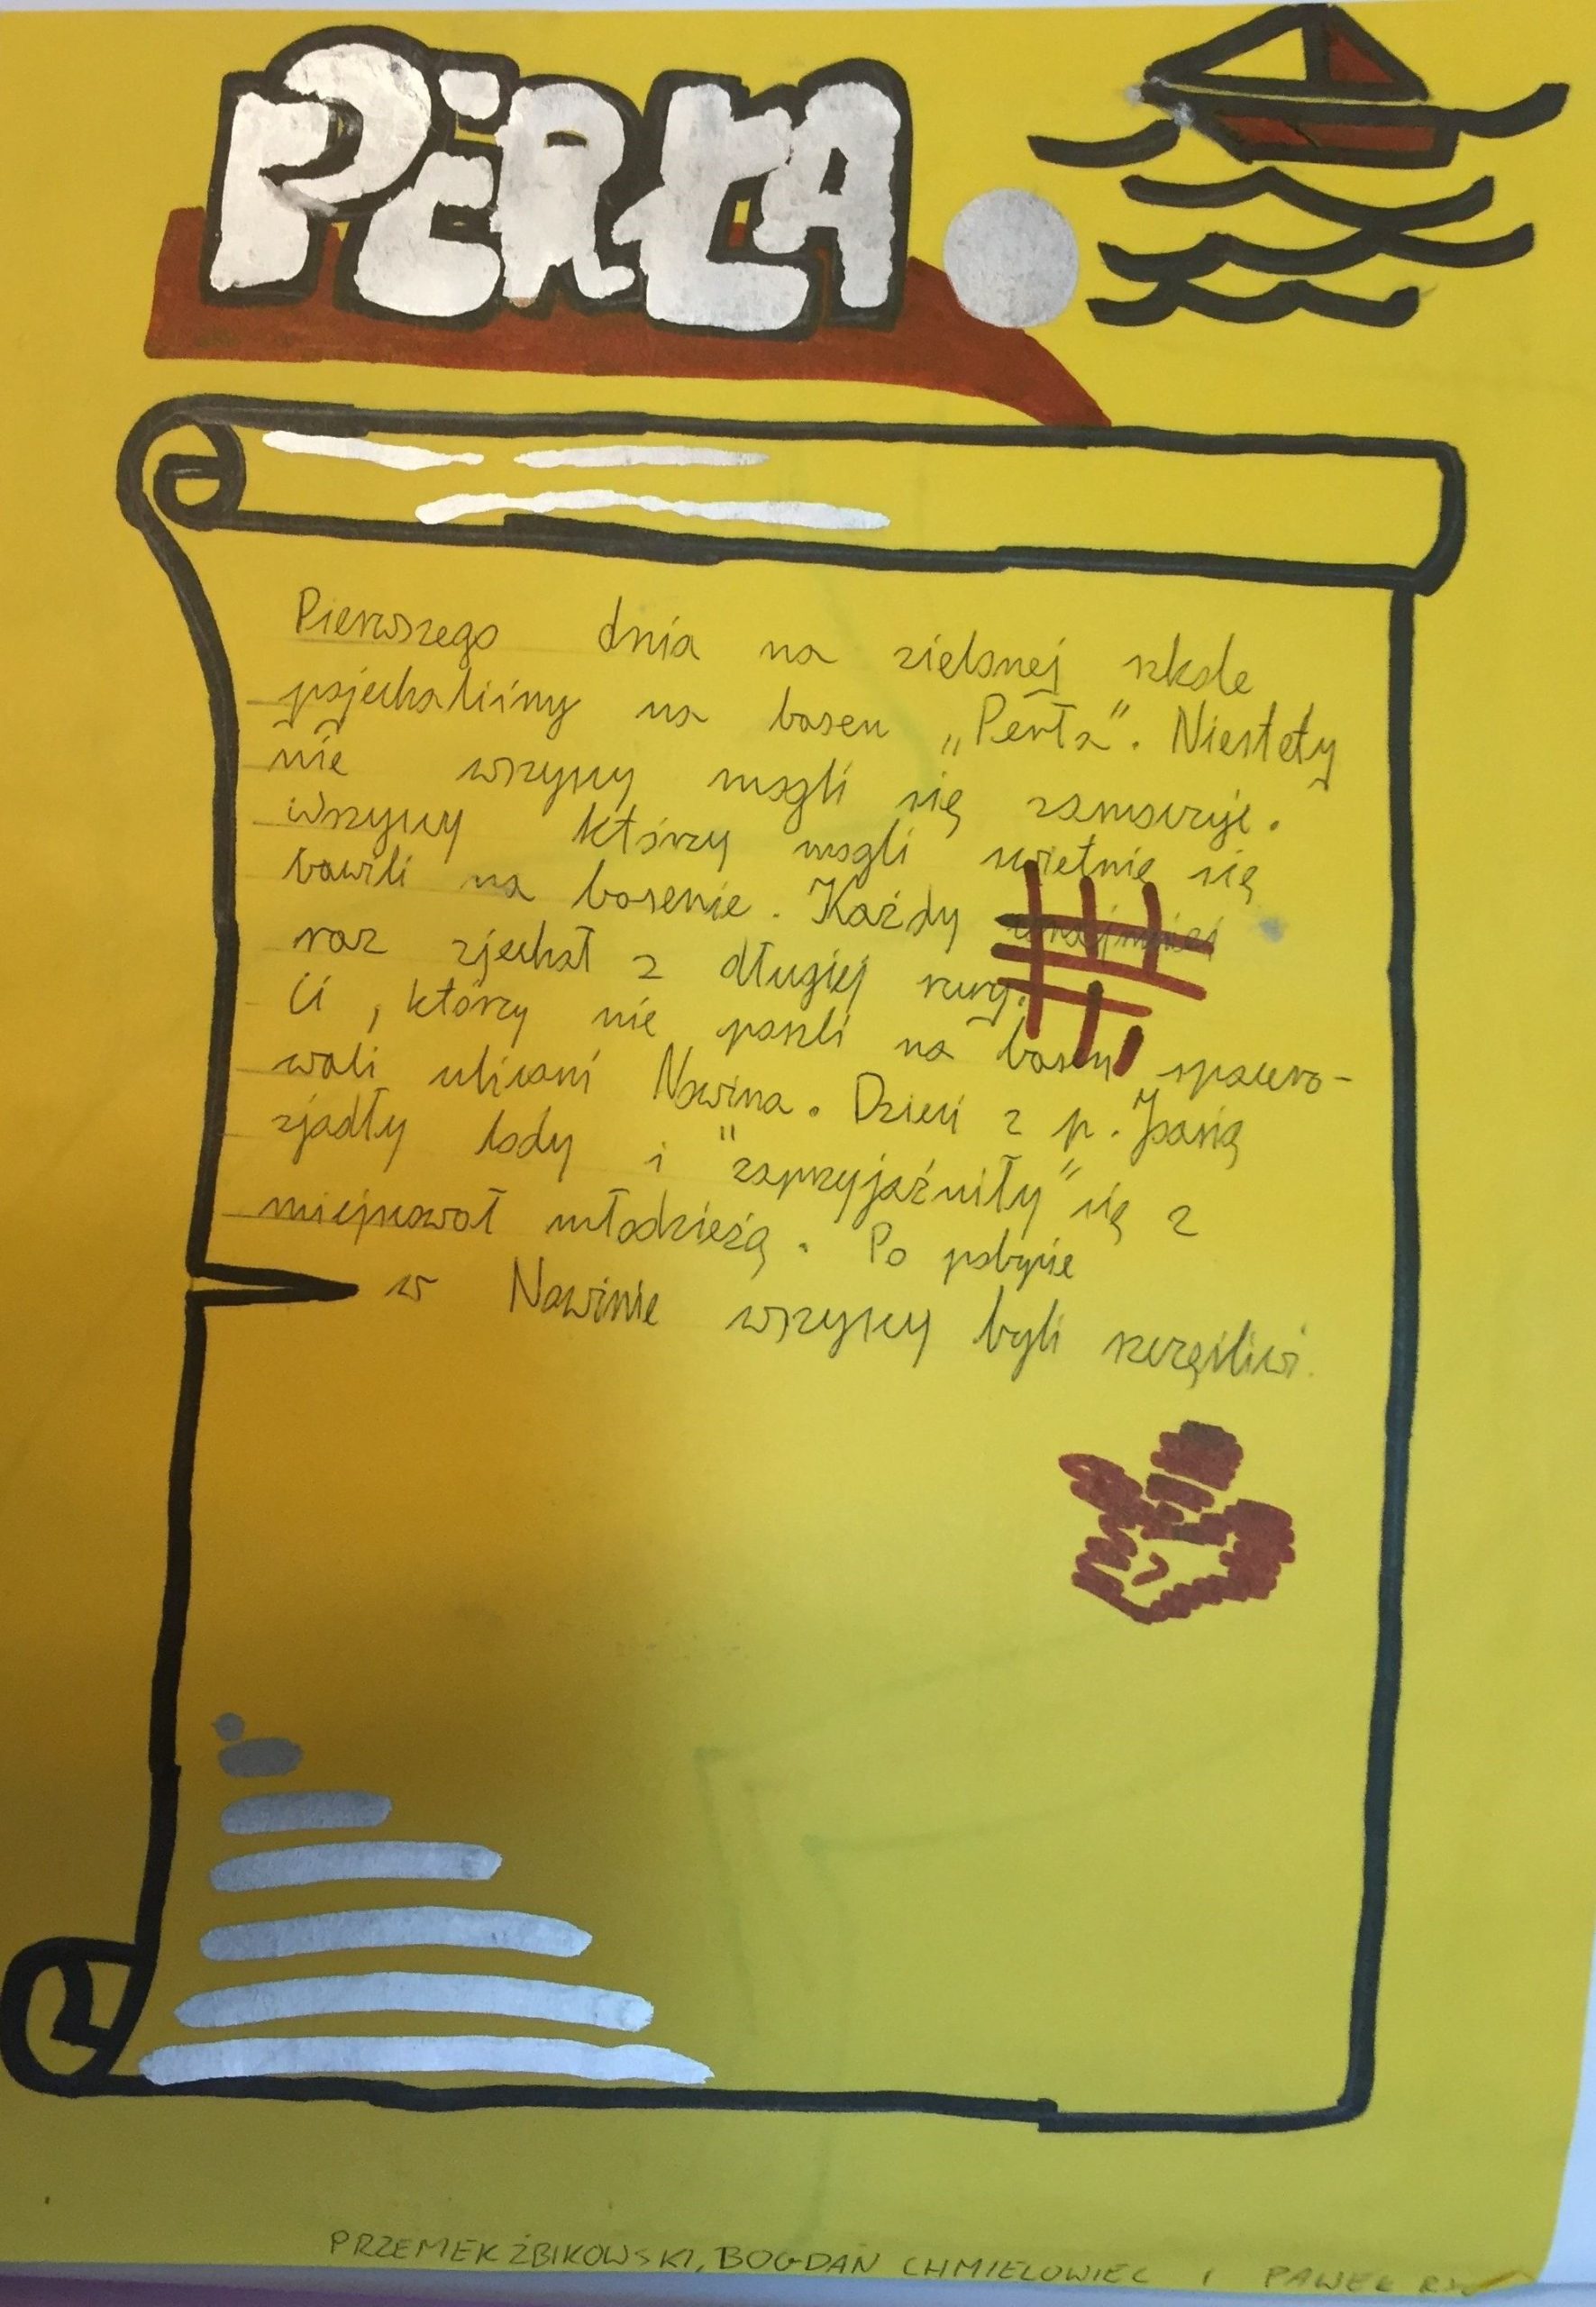 PERŁA
Pierwszego dnia na zielonej szkole
pojechaliśmy na basen „Perła”. Niestety
nie wszyscy mogli się zamoczyć.
Wszyscy którzy mogli świetnie się
bawili na basenie. Każdy
raz zjechał z długiej rury.
Ci, którzy nie poszli na basen spacero-
wali ulicami Nowina. Dzieci z p. Joasią
zjadły lody i "zaprzyjaźniły" się z
miejscowot młodzieżą. Po pobycie
w Nowinie wszyscy byli szczęśliwi.
PRZEMEK ŻBIKOWSKI, BOGDAN CHMIELOWIEC I PAWEŁ